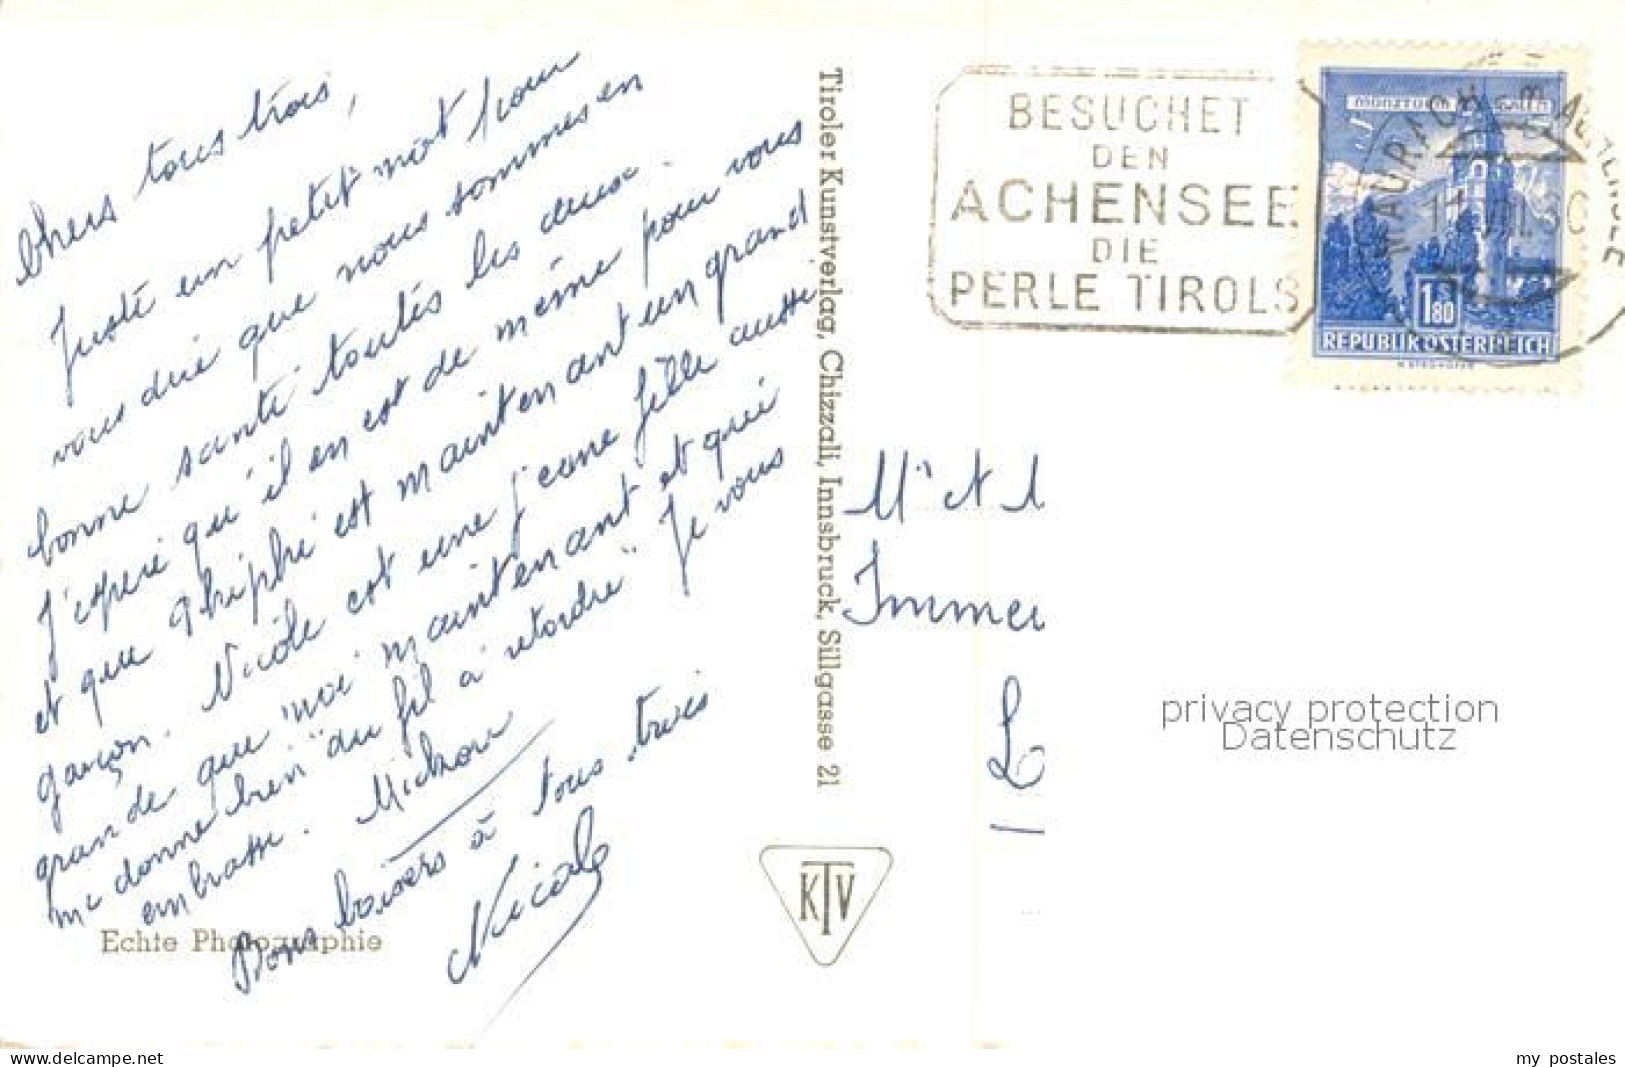 Chers tous trois,
Juste un petit mot pour
vous dire que nous sommes en
bonne santé toutes les deux.
J'espère qu'il en est de même pour vous
et que est maintenant un grand
garçon. Nicole est une jeune fille aussi
grande que moi maintenant et qui
me donne bien "du fil à retordre" Je vous
embrasse.
Bons baisers à tous trois
Nicole
Echte Photographie
Tiroler Kunstverlag, Chizzali, Innsbruck, Sillgasse 21
KTV
BESUCHET
DEN
ACHENSEE
DIE
PERLE TIROLS
MAURACH AM ACHENSEE
1 S 80
REPUBLIK ÖSTERREICH
Mr et
privacy protection
Datenschutz
www.delcampe.net
my postales